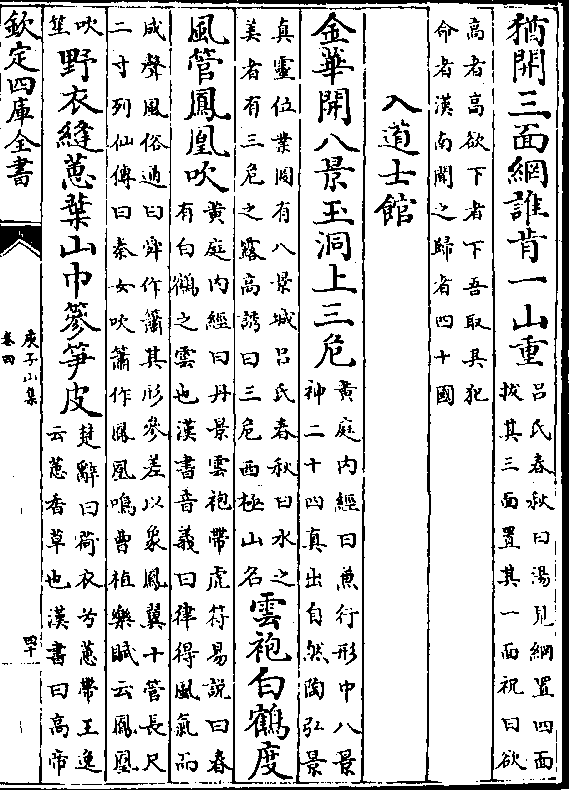 猶開三面網誰肯一山重呂氏春秋曰湯見網置四面
拔其三面置其一面祝曰欲
高者高欲下者下吾取其犯
命者漢南聞之歸者四十國
入道士館
金華開八景玉洞上三危黄庭内經曰兼行形中八景
神二十四真出自然陶弘景
真靈位業圖有八景城呂氏春秋曰水之
美者有三危之露高誘曰三危西極山名
雲袍白鶴度
風管鳳凰吹黄庭内經曰丹景雲袍帶虎符易説曰春
有白鶴之雲也漢書音義曰律得風氣而
成聲風俗通曰舜作簫其形參差以象鳳翼十管長尺
二寸列仙傳曰秦女吹簫作鳳凰鳴曹植樂賦云鳳凰
吹
笙
野衣縫蕙葉山巾篸筍皮楚辭曰荷衣兮蕙帶王逸
云蕙香草也漢書曰高帝
欽定四庫全書
庾子山集
卷四
四十